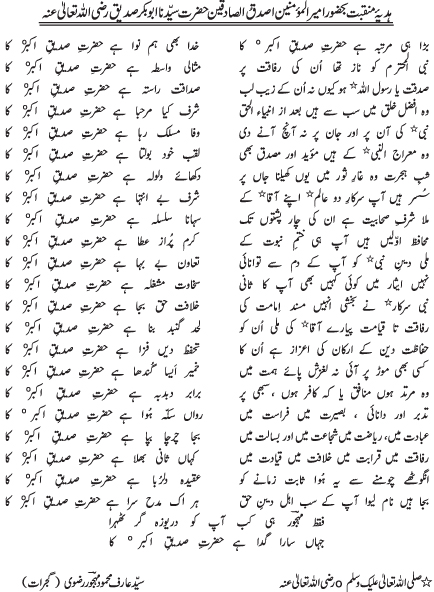 ہدیۂ منقبت بحضور امیر المؤمنین اصدق الصادقین حضرت سیّدنا ابوبکر صدیق رضی اللہ تعالیٰ عنہ
بڑا ہی مرتبہ ہے حضرتِ صدیقِ اکبرؓ کا خدا بھی ہم نوا ہے حضرتِ صدیقِ اکبرؓ کا
نبی المحترم کو ناز تھا اُن کی رفاقت پر مثالی واسطہ ہے حضرتِ صدیقِ اکبرؓ کا
صدقت یا رسول اللہ☆ ہو کیوں نہ اُن کے زیبِ لب صداقت راستہ ہے حضرتِ صدیقِ اکبرؓ کا
وہ افضل خلق میں سب سے ہیں بعد از انبیاء الحق شرف کیا مرحبا ہے حضرتِ صدیقِ اکبرؓ کا
نبی☆ کی آن پر اور جان پر نہ آنچ آنے دی وفا مسلک رہا ہے حضرتِ صدیقِ اکبرؓ کا
وہ معراج النبی☆ کے ہیں مؤید اور مصدق بھی لقب خود بولتا ہے حضرتِ صدیقِ اکبرؓ کا
شبِ ہجرت وہ غارِ ثور میں یوں کھیلنا جاں پر دکھائے ولولہ ہے حضرتِ صدیقِ اکبرؓ کا
سُسر ہیں آپ سرکارِ دو عالم☆ اپنے آقا☆ کے شرف بے انتہا ہے حضرتِ صدیقِ اکبرؓ کا
ملا شرفِ صحابیت ہے ان کی چار پشتوں تک سہانا سلسلہ ہے حضرتِ صدیقِ اکبرؓ کا
محافظ اوّلیں ہیں آپ ہی ختمِ نبوت کے کرم پُراز عطا ہے حضرتِ صدیقِ اکبرؓ کا
ملی دینِ نبی☆ کو آپ کے دم سے توانائی تعاون بے بہا ہے حضرتِ صدیقِ اکبرؓ کا
نہیں ایثار میں کوئی کہیں بھی آپ کا ثانی سخاوت مشغلہ ہے حضرتِ صدیقِ اکبرؓ کا
نبی سرکار☆ نے بخشی انہیں مسند امامت کی خلافت حق بجا ہے حضرتِ صدیقِ اکبرؓ کا
رفاقت تا قیامت پیارے آقا☆ کی ملی اُن کو لحد گنبد بنا ہے حضرتِ صدیقِ اکبرؓ کا
حفاظت دین کے ارکان کی اعزاز ہے اُن کا تحفظ دیں فزا ہے حضرتِ صدیقِ اکبرؓ کا
کسی بھی موڑ پر آئی نہ لغزش پائے ہمت میں خمیر ایسا گُندھا ہے حضرتِ صدیقِ اکبرؓ کا
وہ مرتد ہوں منافق یا کہ کافر ہوں، سبھی پر برابر دبدبہ ہے حضرتِ صدیقِ اکبرؓ کا
تدبر اور دانائی، بصیرت میں فراست میں رواں سکّہ ہُوا ہے حضرتِ صدیقِ اکبرؓ کا
عبادت میں، ریاضت میں شجاعت میں اور بسالت میں بجا چرچا بپا ہے حضرتِ صدیقِ اکبرؓ کا
رفاقت میں قرابت میں خلافت میں قیادت میں کہاں ثانی بھلا ہے حضرتِ صدیقِ اکبرؓ کا
محقق دوجے سنی سے ہے ہُوا ثابت زمانے کو عقیدہ دلرُبا ہے حضرتِ صدیقِ اکبرؓ کا
بجا ہیں نام لیوا آپ کے سب اہلِ دینِ حق ہر اک مدح سرا ہے حضرتِ صدیقِ اکبرؓ کا
فقط مہجورؔ ہی کب آپ کو دریوزہ گر ٹھہرا
جہاں سارا گدا ہے حضرتِ صدیقِ اکبرؓ کا
☆ صلی اللہ تعالیٰ علیک وسلم o رضی اللہ تعالیٰ عنہ سیّد عارف محمود مہجورؔ رضوی (گجرات)